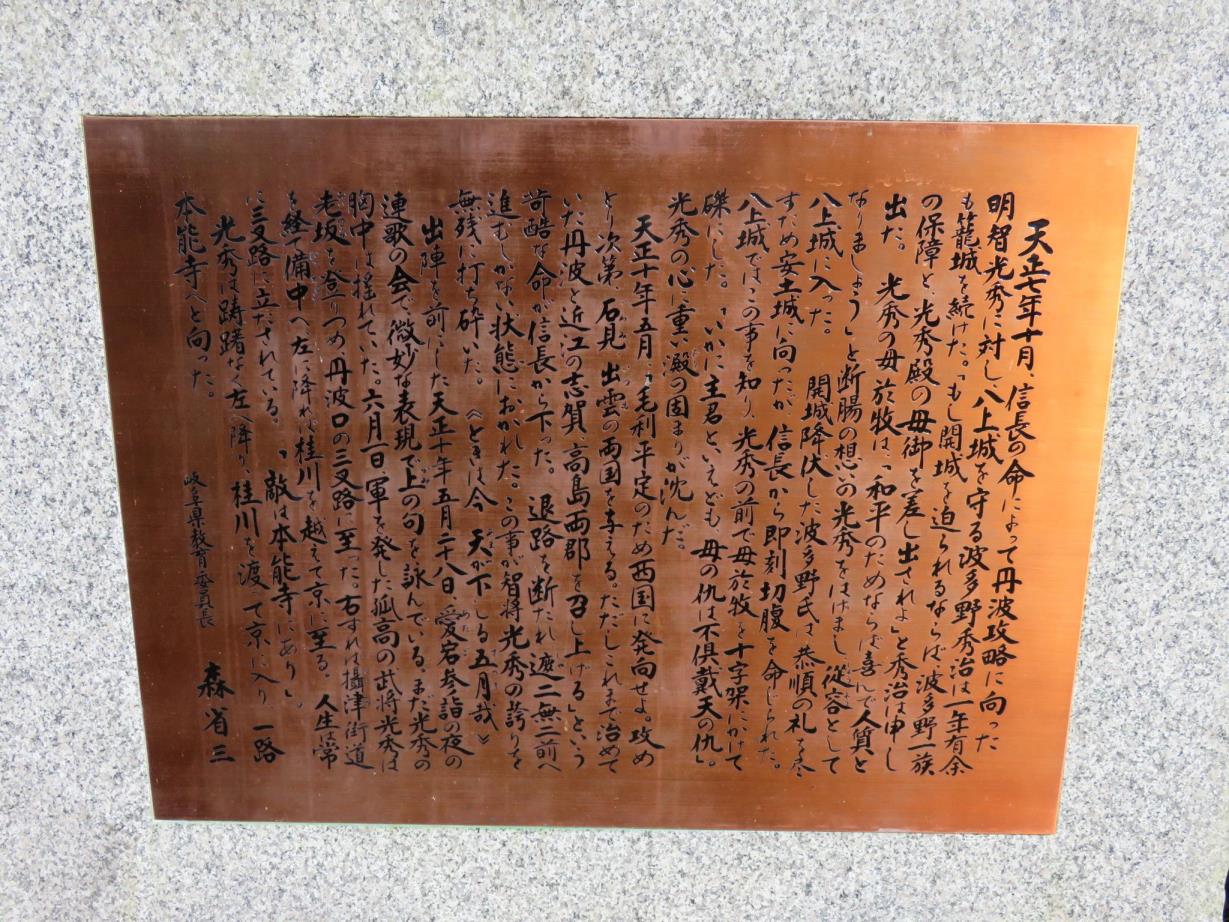 天正七年十月、信長の命によって丹波攻略に向った
明智光秀に対し、八上城を守る波多野秀治は一年有余
も籠城を続けた。「もし開城を迫られるならば、波多野一族
の保障と、光秀殿の母御を差し出されよ」と秀治は申し
出た。　光秀の母於牧は、「和平のためならば喜んで人質と
なりましょう」と断腸の想いの光秀をはげまし、従容として
八上城に入った。　開城降伏した波多野氏は恭順の礼を尽
すため安土城に向ったが、信長から即刻切腹を命じられた。
八上城ではこの事を知り、光秀の前で母於牧を十字架にかけて
磔にした。「いかに主君と、いえども、母の仇は不倶戴天の仇」。
光秀の心に重い澱の固まりが沈んだ。
天正十年五月、「毛利平定のため西国に発向せよ。攻め
とり次第、石見　出雲の両国を与える。ただしこれまで治めて
いた丹波と近江の志賀、高島両郡を召し上げる」という
苛酷な命が信長から下った。　退路を断たれ、遮二無二前へ
追むしかない状態におかれた。この事が智将光秀の誇りを
無残に打ち砕いた。　《ときは今　天が下しる五月哉》
出陣を前にした天正十年五月二十八日、愛宕参詣の夜の
連歌の会で、微妙な表現で上の句を詠んでいる。まだ光秀の
胸中は揺れていた。六月一日軍を発した孤高の武将光秀は
老坂を登りつめ、丹波口の三叉路に至った。右すれば攝津街道
を経て備中へ、左に降れば桂川を越えて京に至る。人生は常
に三叉路に立たされている。　「敵は本能寺にあり」。
光秀は躊躇なく左へ降り、桂川を渡って京に入り、一路
本能寺へと向った。
岐阜県教育委員長　森　省三